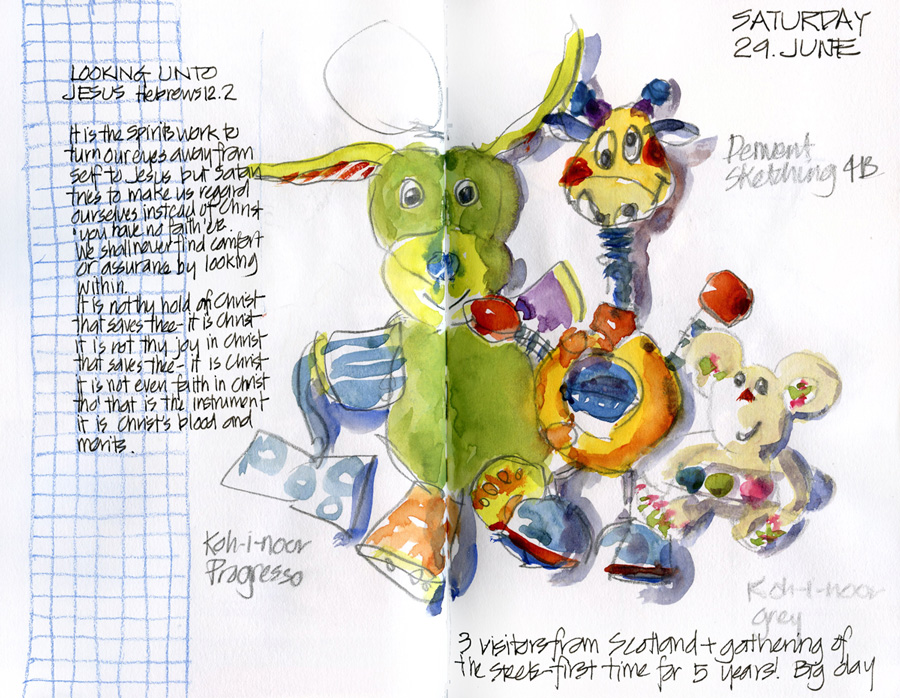 LOOKING UNTO
JESUS Hebrews 12.2
It is the spirits work to
turn our eyes away from
self to Jesus but Satan
tries to make us regard
ourselves instead of Christ
"you have no faith" etc.
We shall never find comfort
or assurance by looking
within.
It is not thy hold of Christ
that saves thee - it is Christ
it is not thy joy in Christ
that saves thee - it is Christ
it is not even faith in Christ
tho' that is the instrument
it is Christ's blood and
merits.
SATURDAY
29. JUNE
Derwent
Sketching 4B
Koh-i-noor
Progresso
Koh-i-noor
Grey
3 visitors from Scotland + gathering of
the - first time for 5 years! Big day